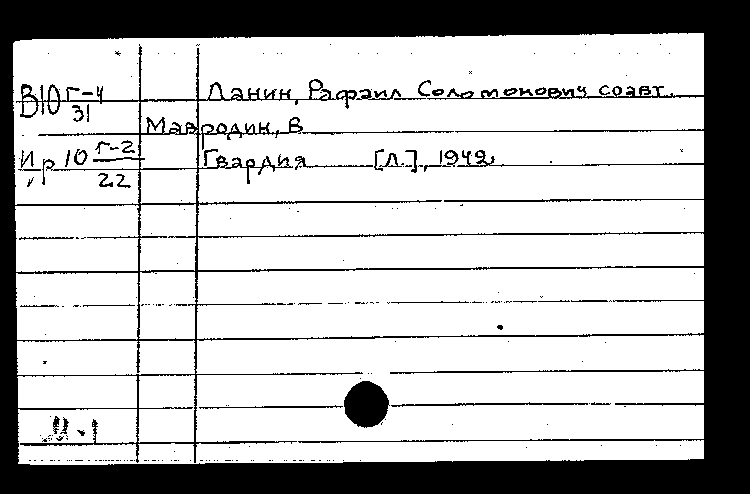 В10 Г-4/31 Данин, Рафаил Соломонович соавт.
Мавродин, В
Ир 10 Г-2/22 Гвардия [Л.], 1942.
М-1